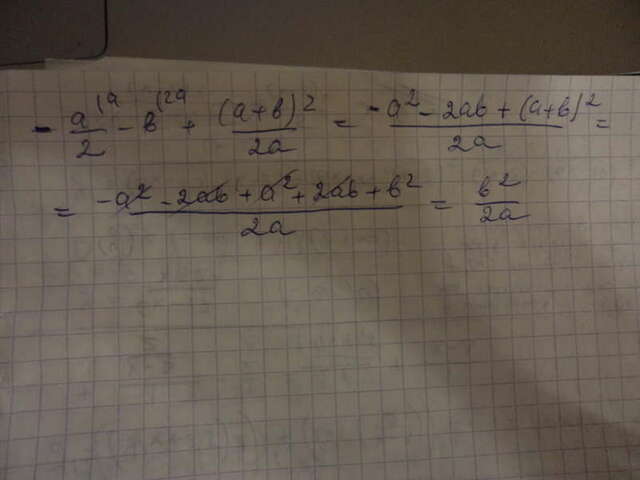 - a/2 (a - b (2a + (a+b)²/2a = -a² - 2ab + (a+b)²/2a =
= -a² - 2ab + a² + 2ab + b²/2a = b²/2a